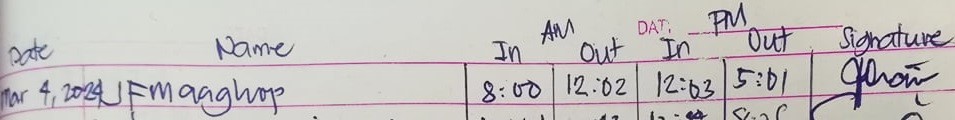 AM DAT: PM
Date Name In Out In Out Signature
Mar 4, 2024 JFmaghop 8:00 12:02 12:03 5:01